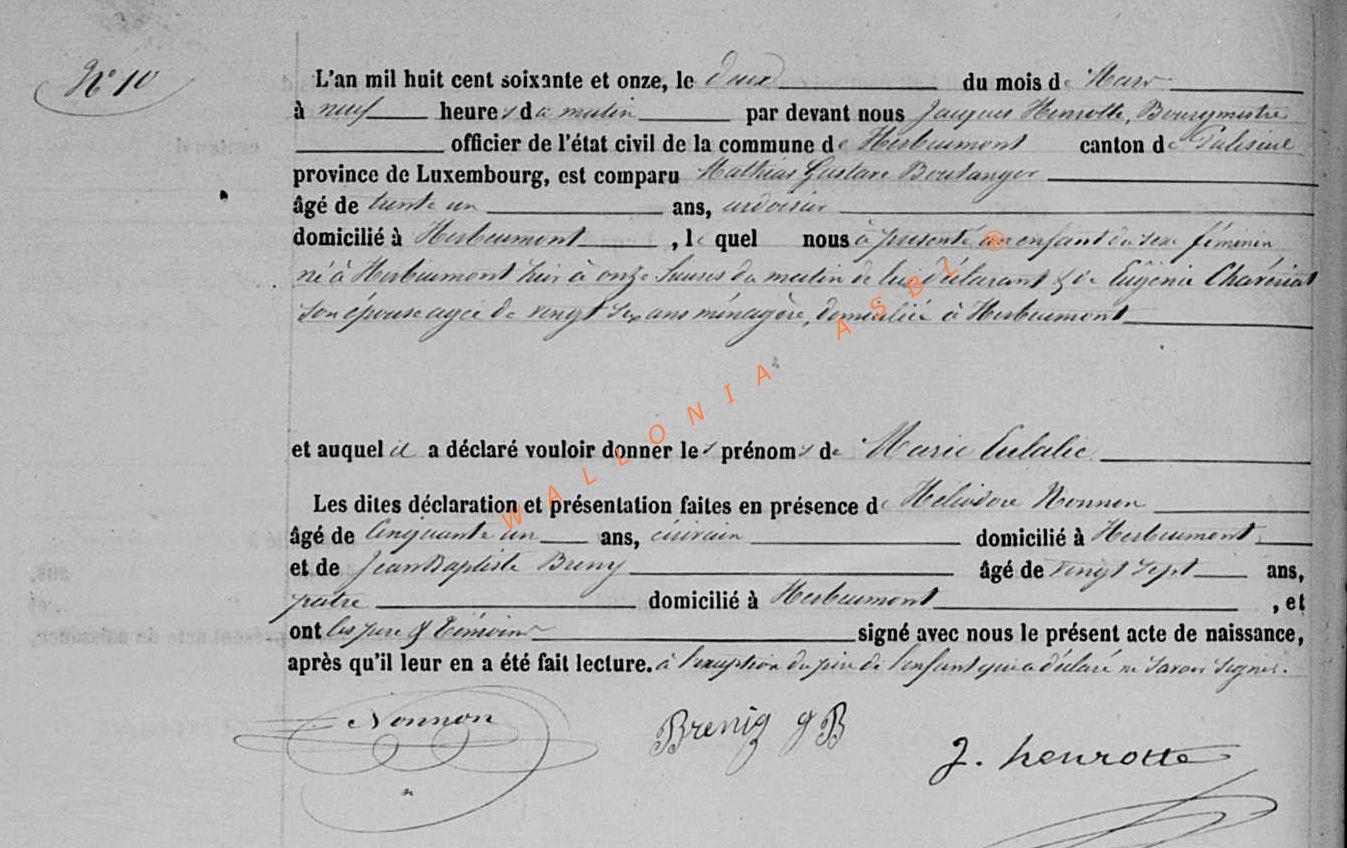 N° 10
L'an mil huit cent soixante et onze, le deux du mois de Mars
à neuf heures du matin par devant nous Jacques Henrotte, Bourgmestre
officier de l'état civil de la commune de Herbeumont canton de Paliseul
province de Luxembourg, est comparu Mathias Gustave Boulanger
âgé de trente un ans, ardoisier
domicilié à Herbeumont, le quel nous à présenté un enfant du sexe féminin
né à Herbeumont hier à onze heures du matin de lui déclarant & de Eugénie Chavériat
son épouse agée de vingt six ans ménagère, domiciliée à Herbeumont
et auquel il a déclaré vouloir donner les prénoms de Marie Eulalie
Les dites déclaration et présentation faites en présence de Héliodore Nonnon
âgé de Cinquante un ans, écrivain domicilié à Herbeumont
et de Jean Baptiste Breny âgé de vingt sept ans,
patre domicilié à Herbeumont, et
ont les père & témoins signé avec nous le présent acte de naissance,
après qu'il leur en a été fait lecture. à l'exception du père de l'enfant qui a déclaré ne savoir signer.
Nonnon Brenig J B J. henrotte
WALLONIA ASBL ®